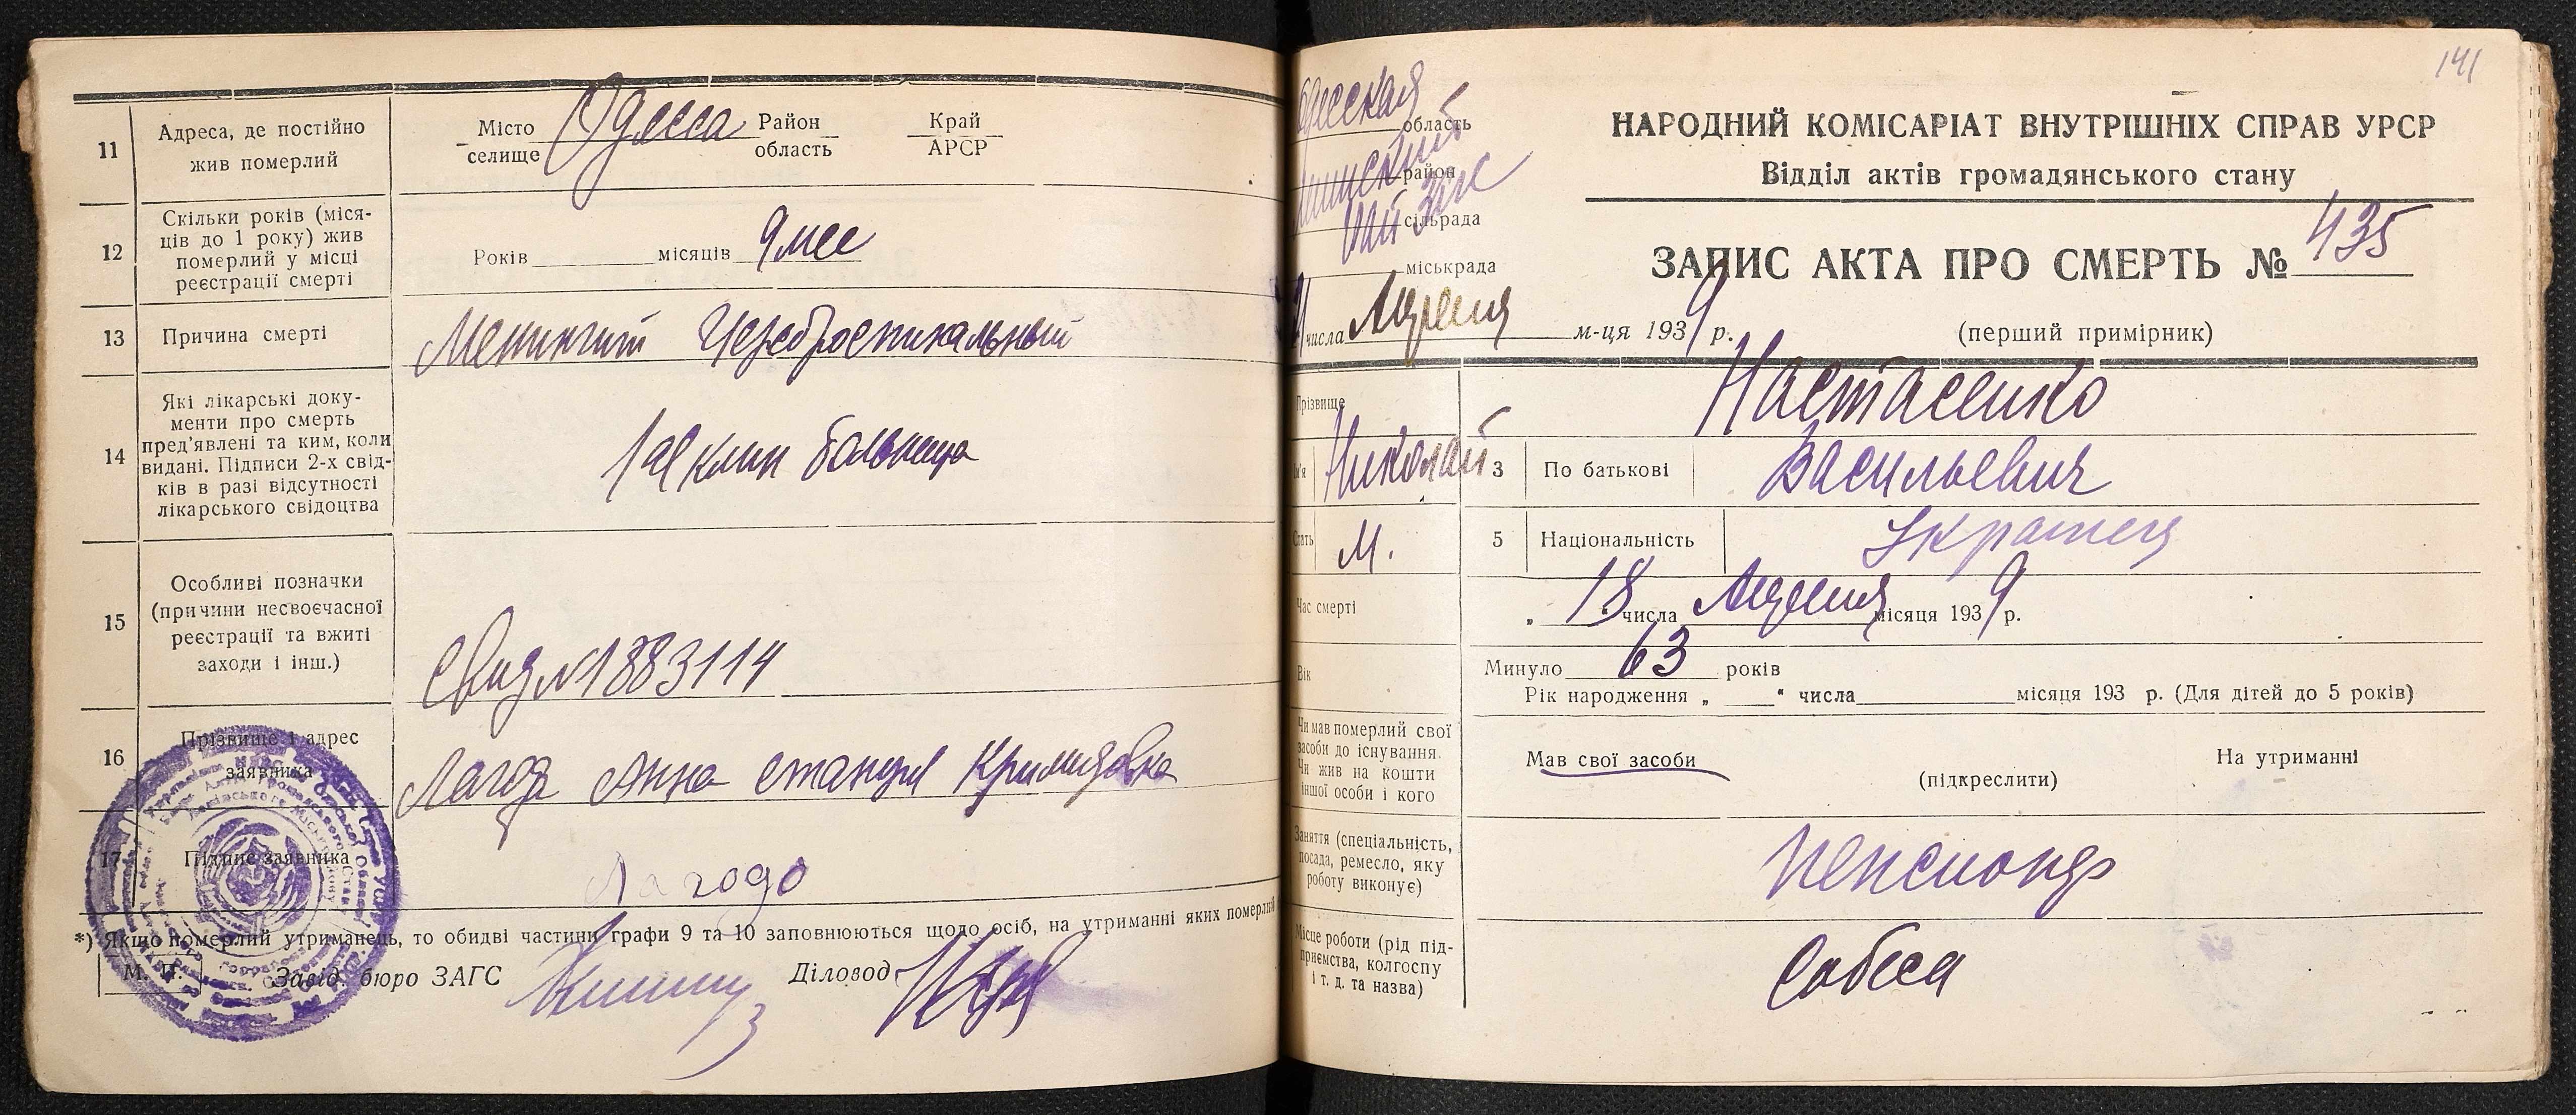 11
Адреса, де постійно
жив померлий
Місто
селище
Одесса
Район
область
Край
АРСР
12
Скільки років (міся-
ців до 1 року) жив
померлий у місці
реєстрації смерті
Років
місяців
9 мес
13
Причина смерті
Менингит Цереброспинальный
14
Які лікарські доку-
менти про смерть
пред'явлені та ким, коли
видані. Підписи 2-х свід-
ків в разі відсутності
лікарського свідоцтва
1ая клин больница
15
Особливі позначки
(причини несвоєчасної
реєстрації та вжиті
заходи і інш.)
Свид N 1883114
16
Прізвище і адрес
заявника
Лагода Анна станция
17
Підпис заявника
Лагода
*) Якщо померлий утриманець, то обидві частини графи 9 та 10 заповнюються щодо осіб, на утриманні яких померлий
М. П.
Завід. бюро ЗАГС
Діловод
141
Одесская
область
район
сільрада
міськрада
числа Апреля м-ця 1939 р.
НАРОДНИЙ КОМІСАРІАТ ВНУТРІШНІХ СПРАВ УРСР
Відділ актів громадянського стану
ЗАПИС АКТА ПРО СМЕРТЬ № 435
(перший примірник)
Прізвище
Настасенко
Ім'я
Николай
3
По батькові
Васильевич
Стать
М.
5
Національність
Украинец
Час смерті
„ 18 " числа Апреля місяця 1939 р.
Вік
Минуло 63 років
Рік народження „ " числа місяця 193 р. (Для дітей до 5 років)
Чи мав померлий свої
засоби до існування.
Чи жив на кошти
іншої особи і кого
Мав свої засоби
(підкреслити)
На утриманні
Заняття (спеціальність,
посада, ремесло, яку
роботу виконує)
пенсионер
Місце роботи (рід під-
приємства, колгоспу
і т. д. та назва)
Собеса